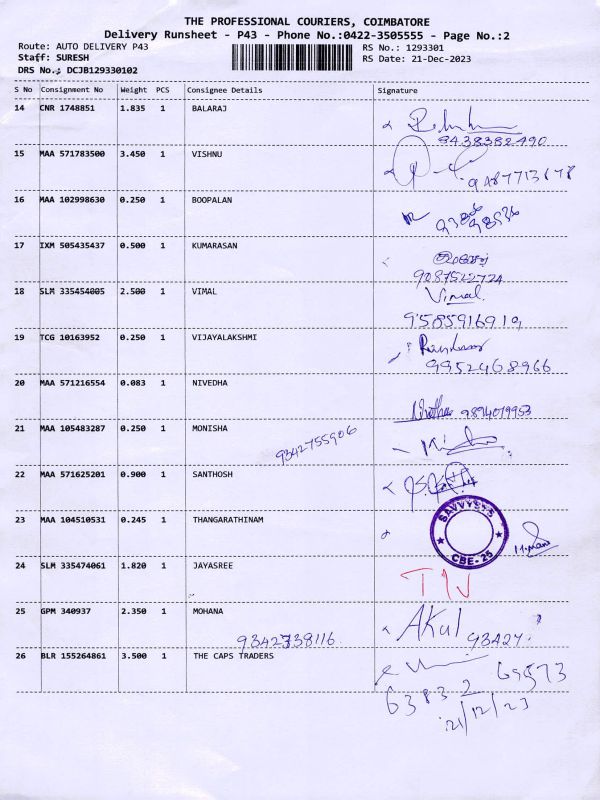 THE PROFESSIONAL COURIERS, COIMBATORE
Delivery Runsheet - P43 - Phone No.:0422-3505555 - Page No.:2
Route: AUTO DELIVERY P43
RS No.: 1293301
Staff: SURESH
RS Date: 21-Dec-2023
DRS No.: DCJB129330102
S No Consignment No Weight PCS Consignee Details Signature
14 CNR 1748851 1.835 1 BALARAJ
9438382490
15 MAA 571783500 3.450 1 VISHNU
9487713678
16 MAA 102998630 0.250 1 BOOPALAN
17 IXM 505435437 0.500 1 KUMARASAN
9087522724
18 SLM 335454005 2.500 1 VIMAL Vimal
9585916919
19 TCG 10163952 0.250 1 VIJAYALAKSHMI
9952468966
20 MAA 571216554 0.083 1 NIVEDHA
9894079953
21 MAA 105483287 0.250 1 MONISHA
9342755906
22 MAA 571625201 0.900 1 SANTHOSH
23 MAA 104510531 0.245 1 THANGARATHINAM
SAVVYSYS
CBE-25
24 SLM 335474061 1.820 1 JAYASREE
25 GPM 340937 2.350 1 MOHANA Akul
9342738116 93427
26 BLR 155264861 3.500 1 THE CAPS TRADERS
63832 69573
21/12/23